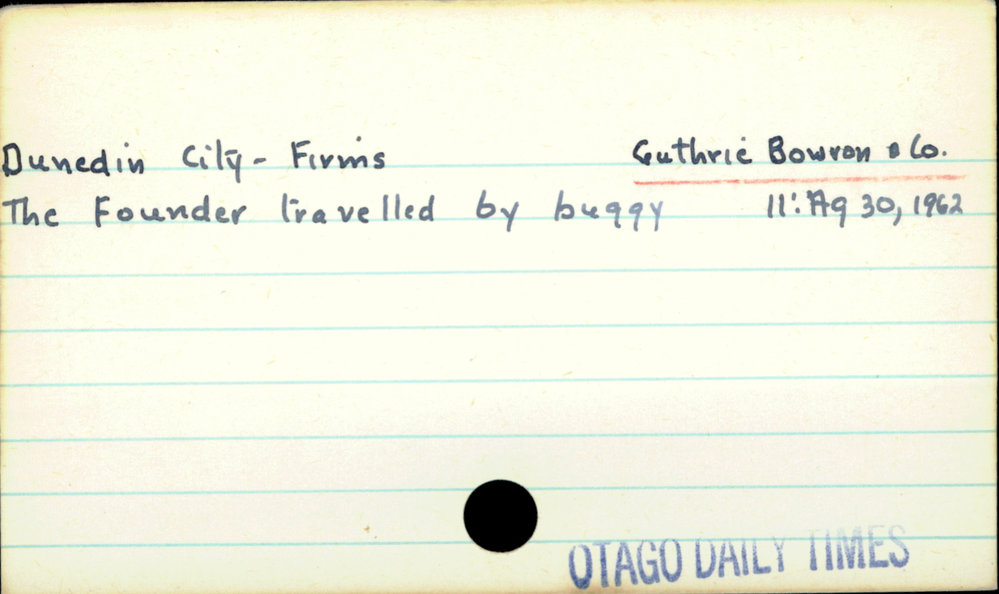 Dunedin City - Firms Guthrie Bowron & Co.
The Founder travelled by buggy 11: Ag 30, 1962
OTAGO DAILY TIMES